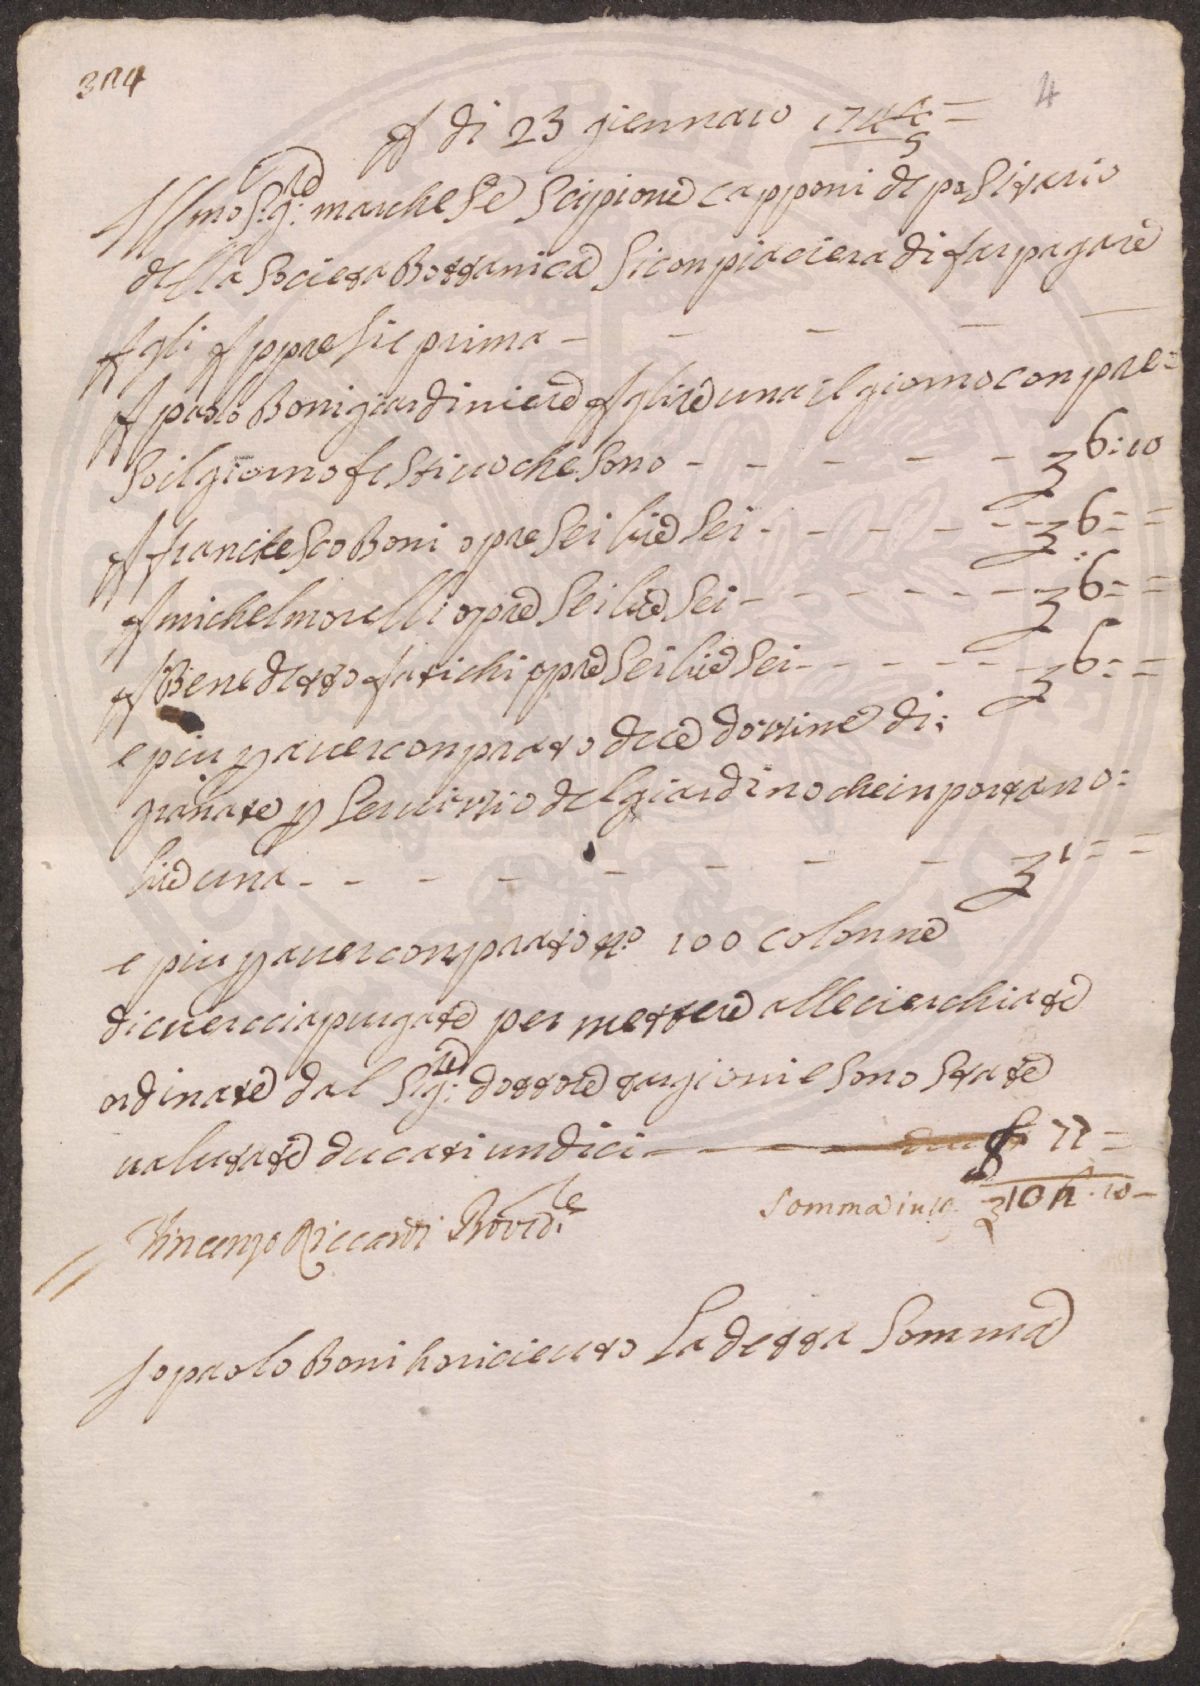 4
A di 23 giennaio 1744/5 =
Ill mo Sig:re marchese Scipione Capponi depositario
della Societa Bottanica Si conpiaciera di far pagare
A gli Appresie prima - - - - -
A paolo Boni giardiniere A lire una il giorno con pre=
so il giorno festivo che sono - - - - - 6:10
A francesco Boni opre sei lire sei - - - - - 6= =
A michel morelli opre sei lire sei - - - - - - 6= =
A Benedetto opre sei lire sei - - - - - 6= =
e piu p aver conprato dua dozzine di:
granate p servizzio del giardino che inportano:
lire una - - - - - - - - 1= =
e piu p aver conprato no 100 colonne
di querccia purgate per mettere alle cierchiate
ordinate dal Sig:re dottore targioni e sono state
valutate ducati undici 11 =
Somma in 10 . 10 -
Vincenzo Riccardi Provdre
Io paolo Boni ho ricieuto La detta Somma